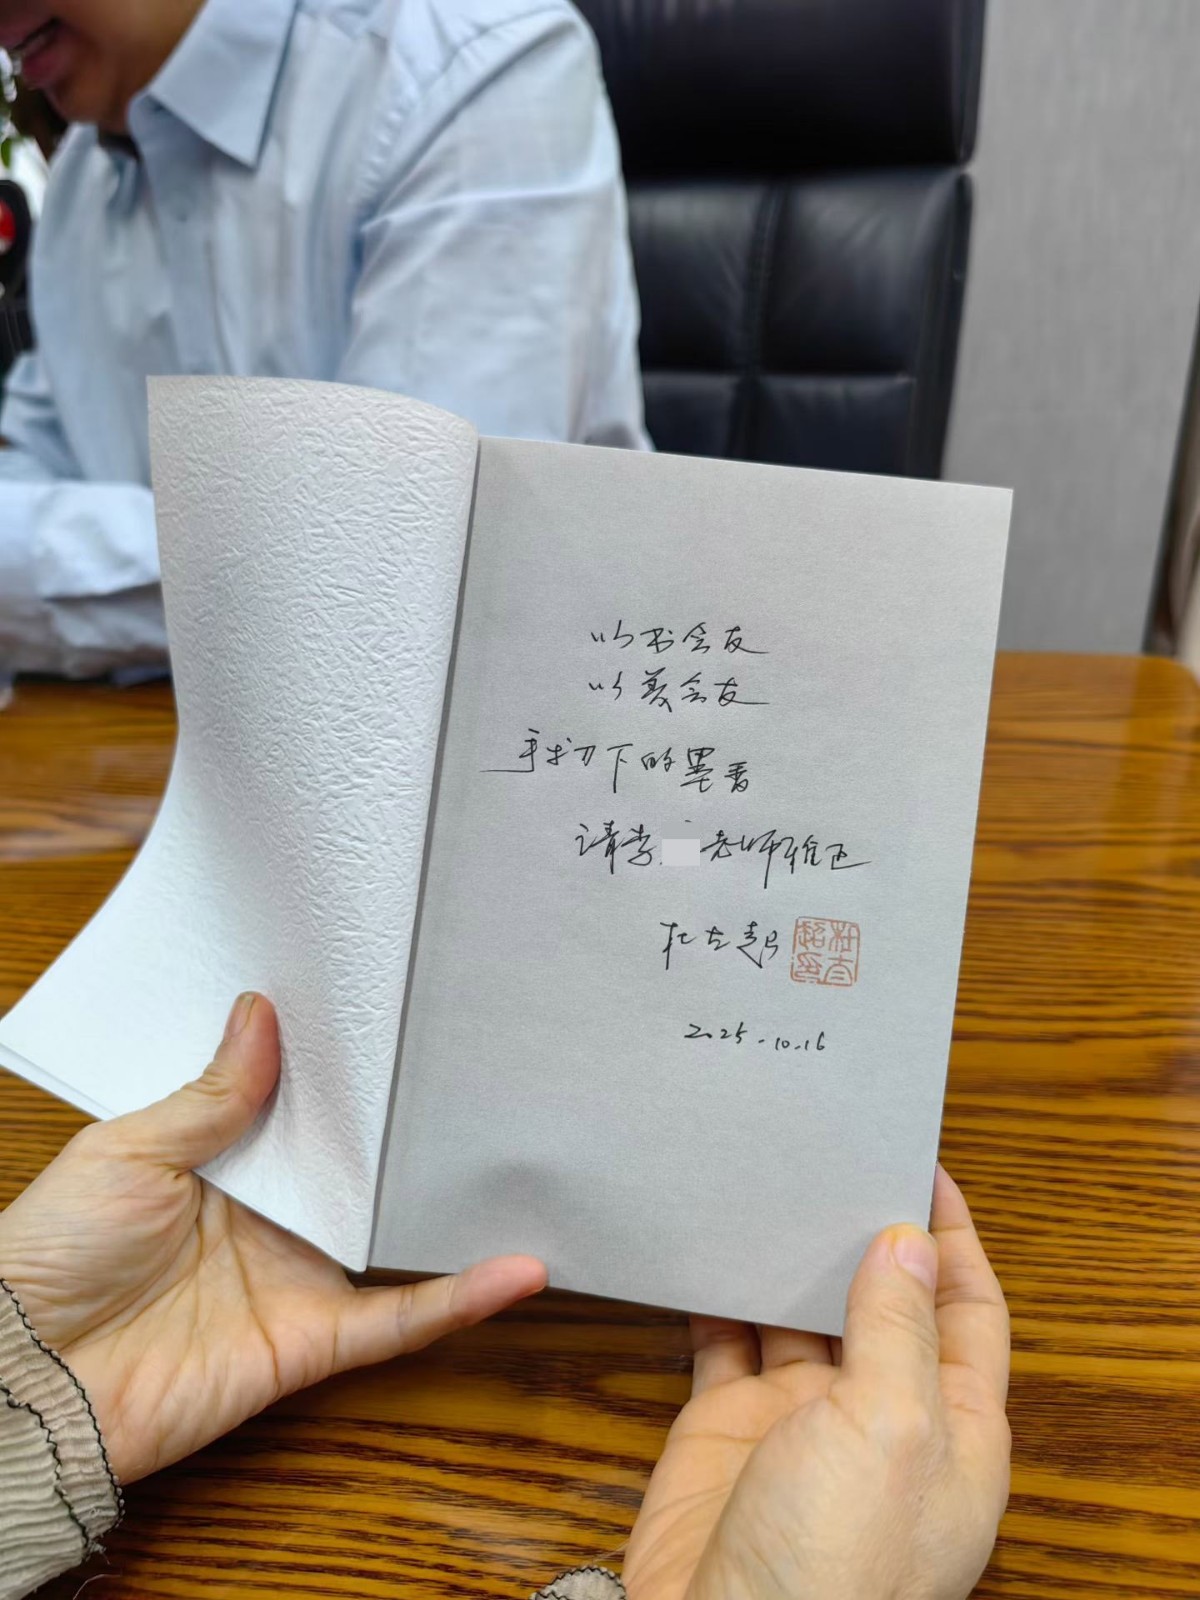 以书会友
以美会友
手术刀下的墨香
请李 老师雅正
杜太超
杜太超印
2025.10.16